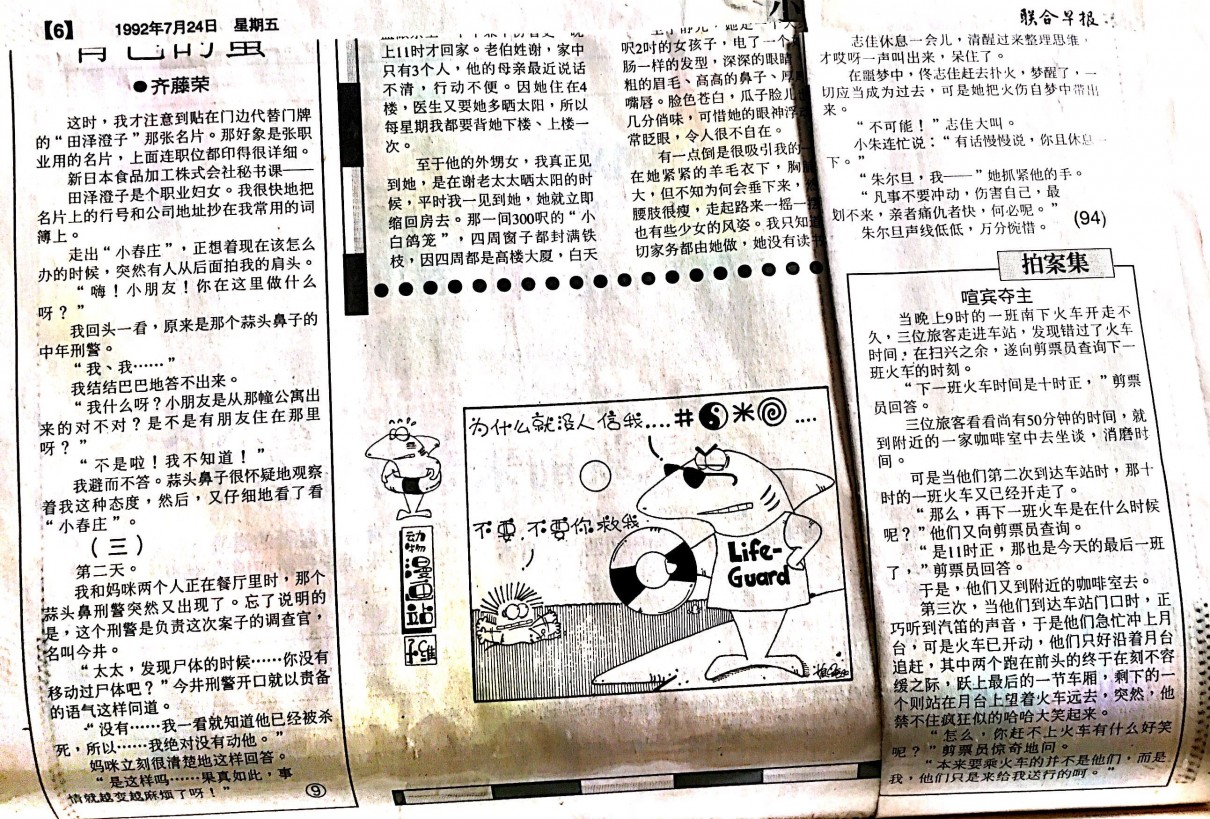 【6】 1992年7月24日 星期五
联合早报
●齐藤荣
这时，我才注意到贴在门边代替门牌
的“田泽澄子”那张名片。那好象是张职
业用的名片，上面连职位都印得很详细。
新日本食品加工株式会社秘书课——
田泽澄子是个职业妇女。我很快地把
名片上的行号和公司地址抄在我常用的词
簿上。
走出“小春庄”，正想着现在该怎么
办的时候，突然有人从后面拍我的肩头。
“嗨！小朋友！你在这里做什么
呀？”
我回头一看，原来是那个蒜头鼻子的
中年刑警。
“我、我……”
我结结巴巴地答不出来。
“我什么呀？小朋友是从那幢公寓出
来的对不对？是不是有朋友住在那里
呀？”
“不是啦！我不知道！”
我避而不答。蒜头鼻子很怀疑地观察
着我这种态度，然后，又仔细地看了看
“小春庄”。
（三）
第二天。
我和妈咪两个人正在餐厅里时，那个
蒜头鼻刑警突然又出现了。忘了说明的
是，这个刑警是负责这次案子的调查官，
名叫今井。
“太太，发现尸体的时候……你没有
移动过尸体吧？”今井刑警开口就以责备
的语气这样问道。
“没有……我一看就知道他已经被杀
死，所以……我绝对没有动他。”
妈咪立刻很清楚地这样回答。
“是这样吗……果真如此，事
情就越变越麻烦了呀！”
⑨
上11时才回家。老伯姓谢，家中
只有3个人，他的母亲最近说话
不清，行动不便。因她住在4
楼，医生又要她多晒太阳，所以
每星期我都要背她下楼、上楼一
次。
至于他的外甥女，我真正见
到她，是在谢老太太晒太阳的时
候，平时我一见到她，她就立即
缩回房去。那一间300呎的“小
白鸽笼”，四周窗子都封满铁
枝，因四周都是高楼大厦，白天
呎2吋的女孩子，电了一个
肠一样的发型，深深的眼睛
粗的眉毛、高高的鼻子、厚
嘴唇。脸色苍白，瓜子脸儿
几分俏味，可惜她的眼神浮
常眨眼，令人很不自在。
有一点倒是很吸引我的
在她紧紧的羊毛衣下，胸
大，但不知为何会垂下来，
腰肢很瘦，走起路来一摇一
也有些少女的风姿。我只知
切家务都由她做，她没有读
为什么就没人信我....#☯*@....
不要，不要你救我
Life-
Guard
动物漫画站
志佳休息一会儿，清醒过来整理思维，
才哎呀一声叫出来，呆住了。
在噩梦中，佟志佳赶去扑火，梦醒了，一
切应当成为过去，可是她把火伤自梦中带出
来。
“不可能！”志佳大叫。
小朱连忙说：“有话慢慢说，你且休息一
下。”
“朱尔旦，我——”她抓紧他的手。
“凡事不要冲动，伤害自己，最
划不来，亲者痛仇者快，何必呢。”
朱尔旦声线低低，万分惋惜。
(94)
拍案集
喧宾夺主
当晚上9时的一班南下火车开走不
久，三位旅客走进车站，发现错过了火车
时间，在扫兴之余，遂向剪票员查询下一
班火车的时刻。
“下一班火车时间是十时正，”剪票
员回答。
三位旅客看看尚有50分钟的时间，就
到附近的一家咖啡室中去坐谈，消磨时
间。
可是当他们第二次到达车站时，那十
时的一班火车又已经开走了。
“那么，再下一班火车是在什么时候
呢？”他们又向剪票员查询。
“是11时正，那也是今天的最后一班
了，”剪票员回答。
于是，他们又到附近的咖啡室去。
第三次，当他们到达车站门口时，正
巧听到汽笛的声音，于是他们急忙冲上月
台，可是火车已开动，他们只好沿着月台
追赶，其中两个跑在前头的终于在刻不容
缓之际，跃上最后的一节车厢，剩下的一
个则站在月台上望着火车远去，突然，他
禁不住疯狂似的哈哈大笑起来。
“怎么，你赶不上火车有什么好笑
呢？”剪票员惊奇地问。
“本来要乘火车的并不是他们，而是
我，他们只是来给我送行的呵。”